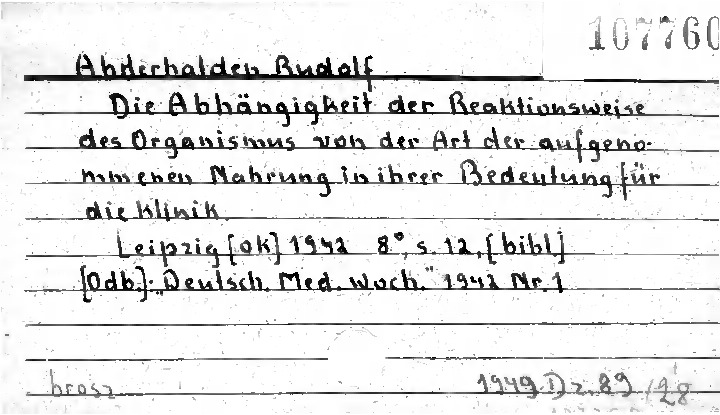 107760
Abderhalden Rudolf
Die Abhängigkeit der Reaktionsweise
des Organismus von der Art der aufgeno-
mmenen Nahrung in ihrer Bedeutung für
die Klinik.
Leipzig [ok] 1942 8°, s. 12, [bibl.]
[Odb.]: "Deutsch. Med. Woch." 1942 Nr. 1
brosz
1949 Dz. 89/28